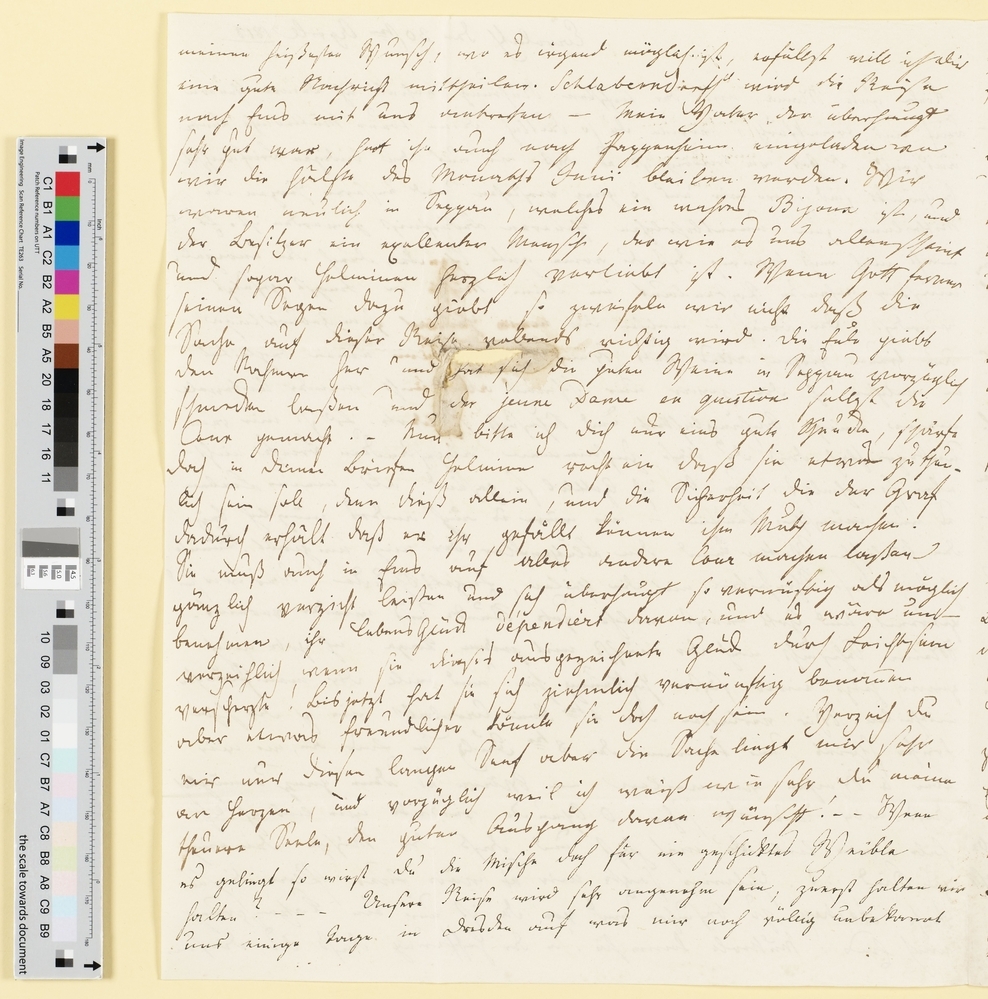 meinen heißesten Wunsch, wo es irgend möglich ist, erfüllst will ich dir
eine gute Nachricht mittheilen. Schlaberndorff wird die Reise
nach Ems mit uns antreten — Mein Vater der überhaupt
sehr gut war, hat ihn auch nach Pappenheim eingeladen wo
wir die Hälfte des Monaths Juni bleiben werden. Wir
waren neulich in Seppau, welches ein wahres Bijoux ist, und
der Besitzer ein exellenter Mensch, der wie es uns allen scheint
und sogar Helminen herzlich verliebt ist. Wenn Gott ferner
seinen Segen dazu giebt so zweifeln wir nicht daß die
Sache auf dieser Reise vollends richtig wird. Die Eule giebt
den Nahmen her und hat sich die guten Weine in Seppau vorzüglich
schmecken laßen und der jeune Dame en question selbst die
Cour gemacht. — Nun bitte ich dich nur eins gute schärfe
doch in deinen Briefen Helmine recht ein daß sie etwas zuthu-
lich sein soll, denn dieß allein, und die Sicherheit die der Graf
dadurch erhält daß er ihr gefällt können ihm Muth machen.
Sie muß auch in Ems auf alles andere Cour machen laßen
gänzlich verzicht leisten und sich überhaupt so vernünftig als möglich
benehmen, ihr LebensGlück dépendiert davon, und es wäre un-
verzeihlich wenn sie dieses ausgezeichnete Glück durch Leichtsinn
verscherzte! Bis jetzt hat sie sich ziehmlich vernünftig benommen
aber etwas freundlicher könnte sie doch noch sein. Verzeih du
mir nur diesen langen Senf aber die Sache liegt mir sehr
am Herzen, und vorzüglich weil ich weiß wie sehr du meine
theuere Seele, den guten Ausgang davon wünscht! — — Wenn
es gelingt so wirst du die Mische doch für ein geschicktes Weible
halten? — — — — Unsere Reise wird sehr angenehm sein, zuerst halten wir
uns einige Tage in Dresden auf was mir noch völlig unbekannt